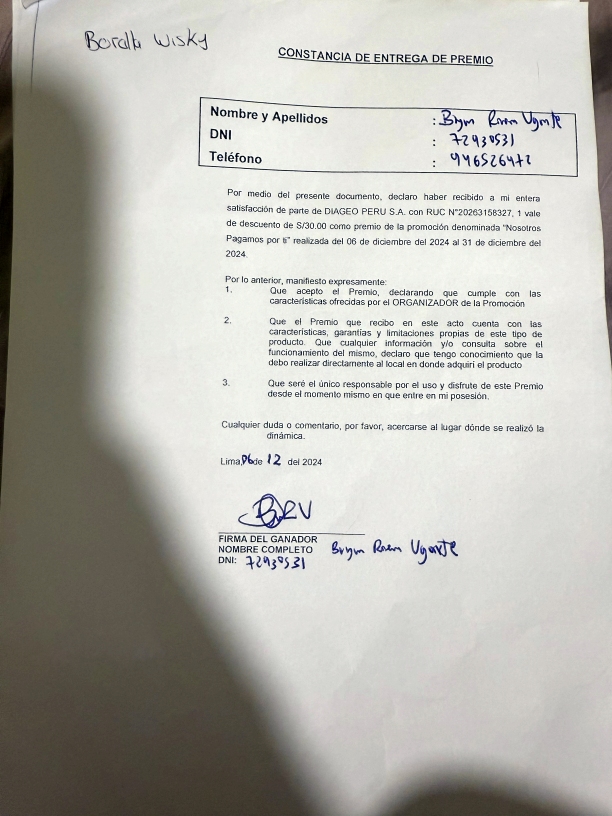 Botella Wisky
CONSTANCIA DE ENTREGA DE PREMIO
Nombre y Apellidos : Ugarte
DNI : 72930531
Teléfono : 946526472
Por medio del presente documento, declaro haber recibido a mi entera
satisfacción de parte de DIAGEO PERU S.A. con RUC N°20263158327, 1 vale
de descuento de S/30.00 como premio de la promoción denominada "Nosotros
Pagamos por ti" realizada del 06 de diciembre del 2024 al 31 de diciembre del
2024.
Por lo anterior, manifiesto expresamente:
1. Que acepto el Premio, declarando que cumple con las
características ofrecidas por el ORGANIZADOR de la Promoción
2. Que el Premio que recibo en este acto cuenta con las
características, garantías y limitaciones propias de este tipo de
producto. Que cualquier información y/o consulta sobre el
funcionamiento del mismo, declaro que tengo conocimiento que la
debo realizar directamente al local en donde adquirí el producto
3. Que seré el único responsable por el uso y disfrute de este Premio
desde el momento mismo en que entre en mi posesión.
Cualquier duda o comentario, por favor, acercarse al lugar dónde se realizó la
dinámica.
Lima, 06 de 12 del 2024
FIRMA DEL GANADOR
NOMBRE COMPLETO Ugarte
DNI: 72930531